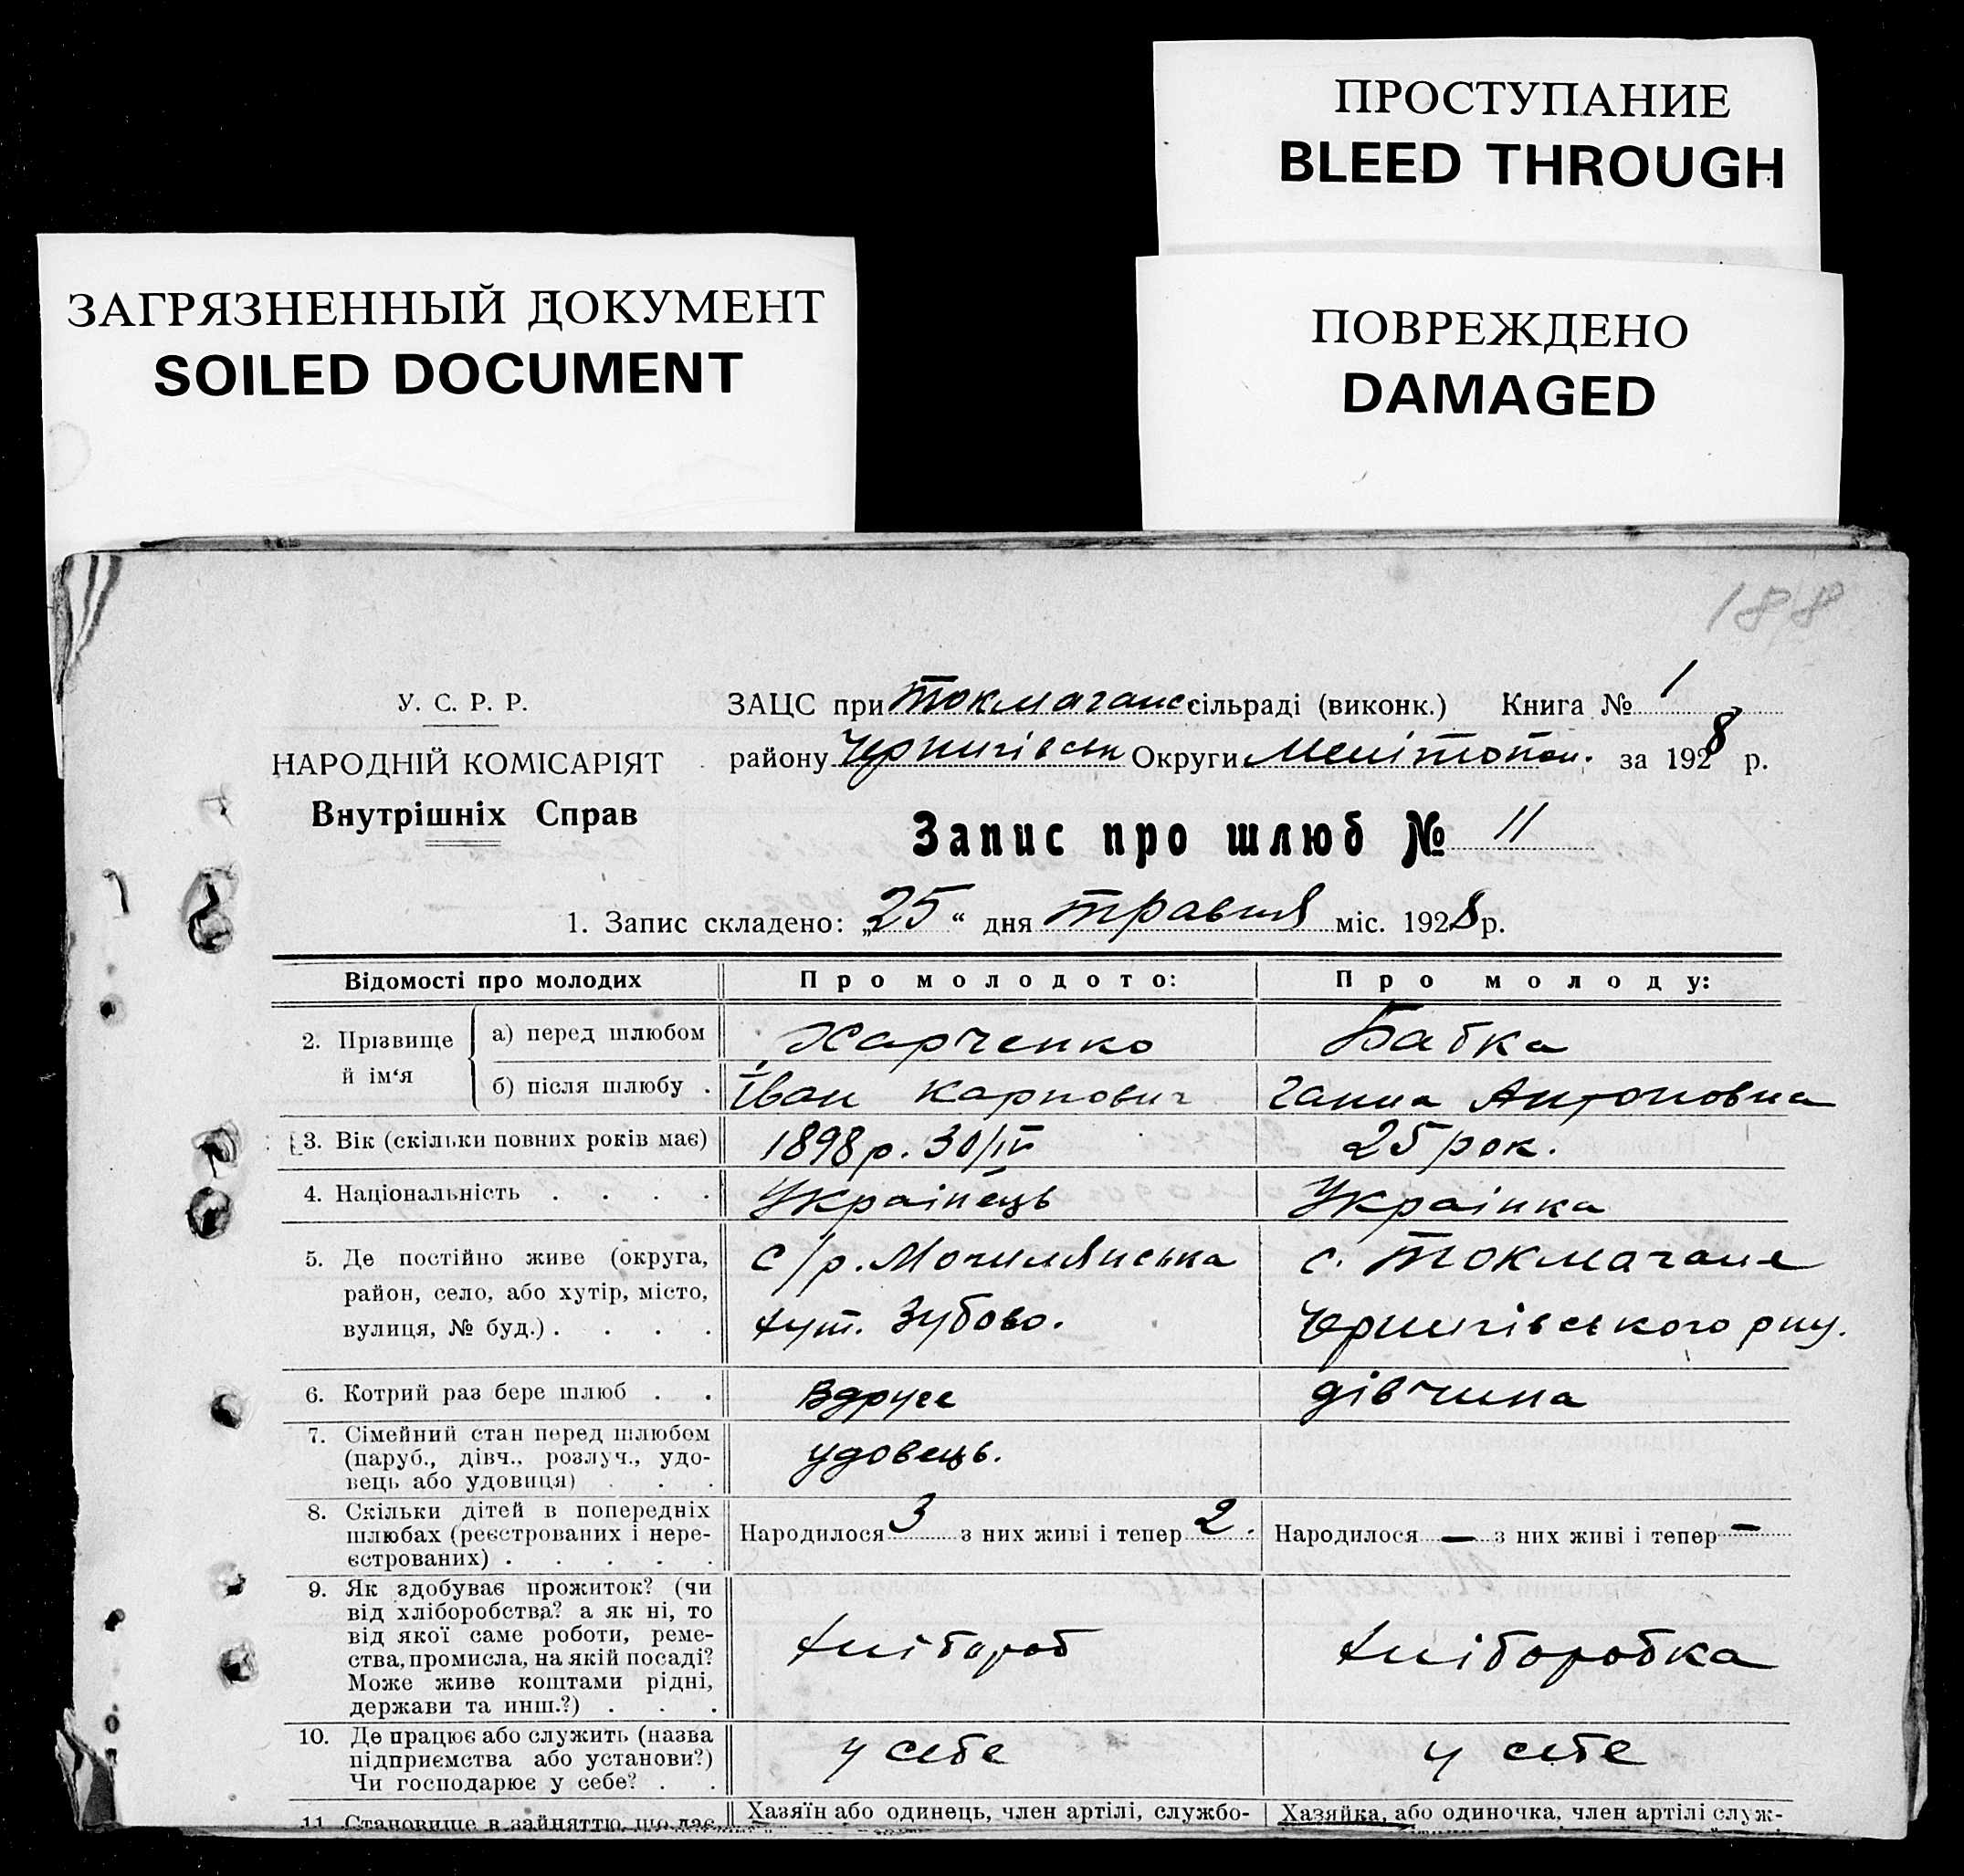 ПРОСТУПАНИЕ
BLEED THROUGH
ЗАГРЯЗНЕННЫЙ ДОКУМЕНТ
SOILED DOCUMENT
ПОВРЕЖДЕНО
DAMAGED
188
У. С. Р. Р.
НАРОДНІЙ КОМІСАРІЯТ
Внутрішніх Справ
ЗАЦС при Токмачанс сільраді (виконк.) Книга № 1
району Чернигівськ Округи Мелітопол. за 1928 р.
Запис про шлюб № 11
1. Запис складено: „25“ дня травня міс. 1928 р.
Відомості про молодих Про молодого: Про молоду:
2. Прізвище й ім‘я а) перед шлюбом Харченко Бабка
б) після шлюбу . Іван Карпович Ганна Антоновна
3. Вік (скільки повних років має) 1898 р. 30/IV 25 рок.
4. Національність . . . . Украінець Украінка
5. Де постійно живе (округа, с/р. Могилянська с. Токмачане
район, село, або хутір, місто,
вулиця, № буд.) . . . . хут. Зубово. Чернигівського рну.
6. Котрий раз бере шлюб . . вдруге дівчина
7. Сімейний стан перед шлюбом
(паруб., дівч., розлуч., удо- удовець.
вець або удовиця) . . .
8. Скільки дітей в попередніх
шлюбах (реєстрованих і нере- Народилося 3 з них живі і тепер 2. Народилося — з них живі і тепер —
єстрованих) . . . . .
9. Як здобуває прожиток? (чи
від хліборобства? а як ні, то
від якої саме роботи, реме- хлібороб хліборобка
ства, промисла, на якій посаді?
Може живе коштами рідні,
держави та инш.?) . . .
10. Де працює або служить (назва у себе у себе
підприємства або установи?)
Чи господарює у себе? . .
11. Становище в зайняттю, що дає Хазяїн або одинець, член артілі, службо- Хазяйка, або одиночка, член артілі служ-